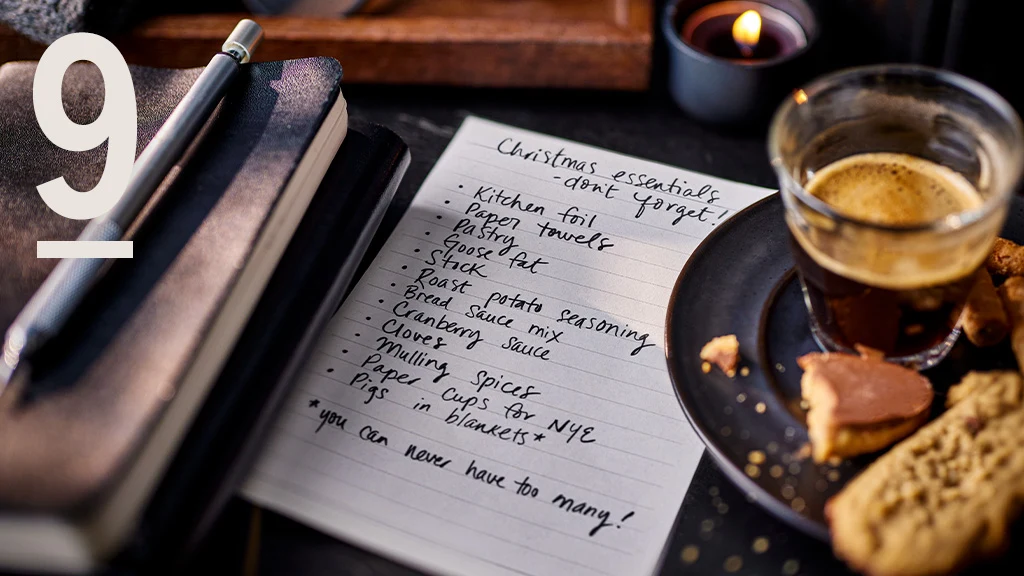 9
Christmas essentials
-dont forget!
• Kitchen foil
• Paper towels
• Pastry
• Goose fat
• Stock
• Roast potato seasoning
• Bread sauce mix
• Cranberry sauce
• Cloves
• Mulling spices
• Paper cups for NYE
• Pigs in blankets*
*you can never have too many!